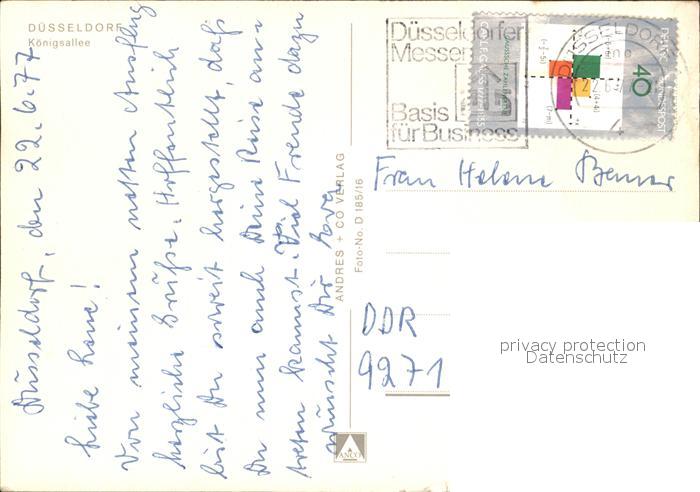 DÜSSELDORF
Königsallee
Düsseldorf, den 22.6.77
Liebe Lene!
Von meinem netten Ausflug
herzliche Grüße. Hoffentlich
bist Du soweit hergestellt, daß
Du nun auch Deine Reise an-
treten kannst. Viel Freude dazu
wünscht Dir Eva
ANDRES + CO VERLAG
Foto-No. D 185/16
ANCO
Düsseldorfer
Messen
Basis
für Business
DÜSSELDORF
40
Frau Helene
DDR
9271
privacy protection
Datenschutz